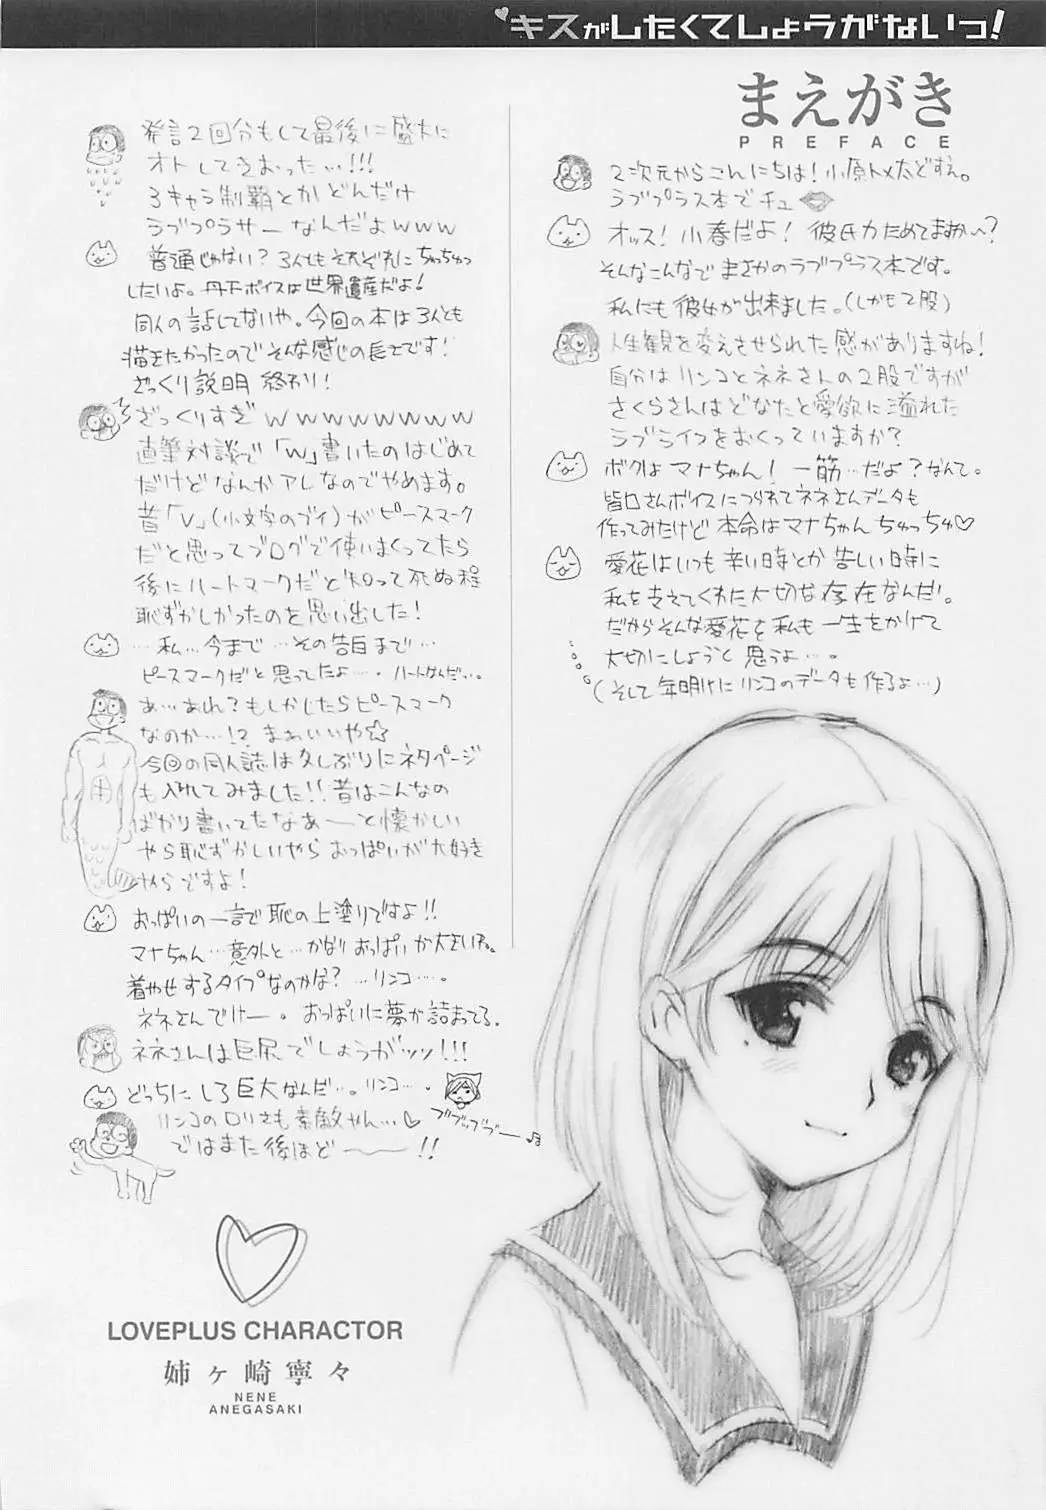 キスがしたくてしょうがないっ!
まえがき
PREFACE
2次元からこんにちは!小原トメ太どすえ。
ラブプラス本でチュ
オッス!小春だよ!彼氏力ためてますかー?
そんなこんなでまさかのラブプラス本です。
私にも彼女が出来ました。(しかも2股)
人生観を変えさせられた感がありますね!
自分はリンコとネネさんの2股ですが
さくらさんはどなたと愛欲に溢れた
ラブライフをおくっていますか?
ボクはマナちゃん!一筋…だよ?なんて。
皆口さんボイスにつられてネネさんデータも
作ってみたけど本命はマナちゃんちゅっちゅ♡
愛花はいつも辛い時とか苦しい時に
私を支えてくれた大切な存在なんだ!。
だからそんな愛花を私も一生をかけて
大切にしようと思うよ…。
(そして年明けにリンコのデータも作るよ…)
発言2回分もして最後に盛大に
オトしてきおった…!!!
3キャラ制覇とかどんだけ
ラブプラサーなんだよwww
普通じゃない?3人ともそれぞれにちゅっちゅっ
したいよ。丹下ボイスは世界遺産だよ!
同人の話してないや。今回の本は3人とも
描きたかったのでそんな感じの長さです!
ざっくり説明終わり!
ざっくりすぎwwwwwwww
直筆対談で「w」書いたのはじめて
だけどなんかアレなのでやめます。
昔「v」(小文字のブイ)がピースマーク
だと思ってブログで使いまくってたら
後にハートマークだと知って死ぬ程
恥ずかしかったのを思い出した!
…私…今まで…その告白まで…
ピースマークだと思ってたよ…。ハートなんだ…。
あ…あれ?もしかしたらピースマーク
なのか…!?まぁいいや☆
今回の同人誌は久しぶりにネタページ
も入れてみました!!昔はこんなの
ばかり書いてたなあーと懐かしい
やら恥ずかしいやらおっぱいが大好き
やらですよ!
おっぱいの一言で恥の上塗りですよ!!
マナちゃん…意外と…かなりおっぱいが大きいな。
着やせするタイプなのかな?…リンコ…。
ネネさんでけー。おっぱいに夢が詰まってる。
ネネさんは巨尻でしょうがッッ!!!
どっちにしろ巨大なんだ…。リンコ…。
ブブッブブー♪
リンコのロリさも素敵やん…♡
ではまた後ほど〜!!
LOVEPLUS CHARACTOR
姉ヶ崎寧々
NENE
ANEGASAKI